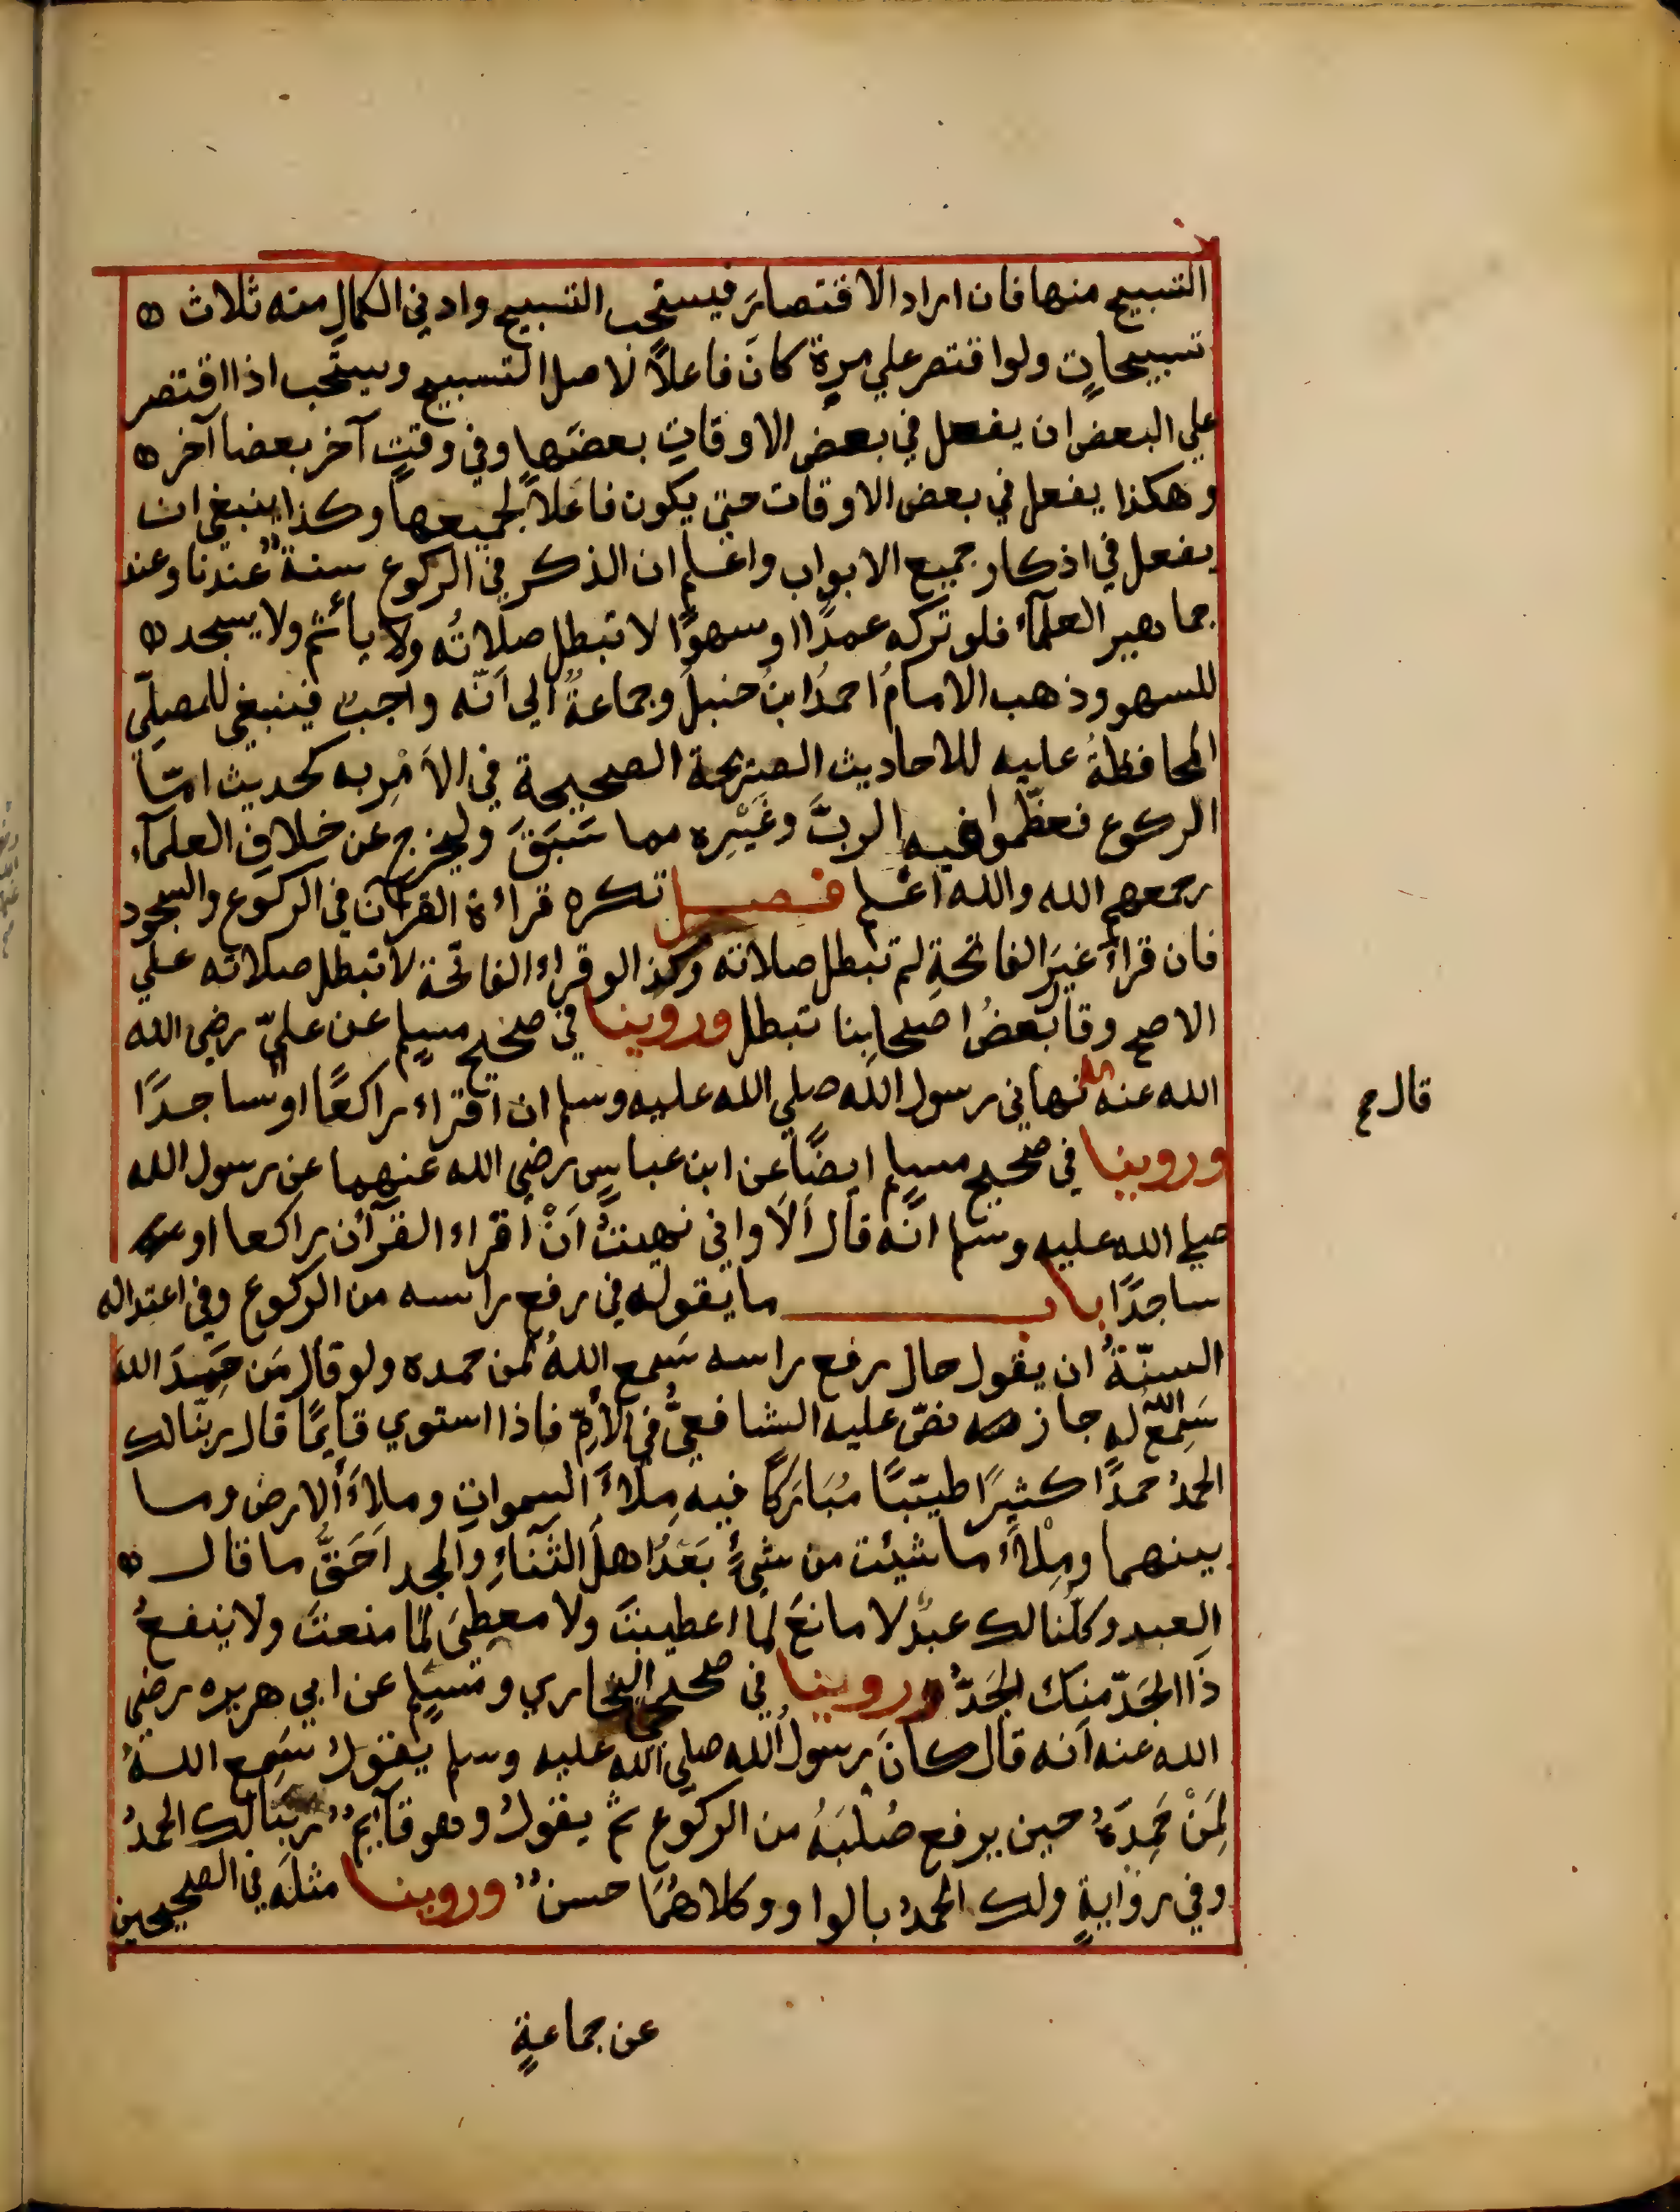 التسبيح منها فان اراد الاقتصارَ فيستحب التسبيح وادني الكمالِ منه ثلاث
تسبيحاتٍ ولو اقتصر علي مرة كانَ فاعلاً لاصل التسبيح ويستَحب اذا اقتصر
علي البعض ان يفعل في بعض الاوقات بعضَها وفي وقتٍ آخر بعضا آخر
وهكذا يفعل في بعض الاوقات حتي يكون فاعلاً لجميعها وكذا ينبغي ان
يفعل في اذكار جميع الابواب واعلم ان الذكر في الركوع سنةٌ عندنا وعند
جماهير العلمآء فلو تركه عمدًا او سهوًا لا تبطل صلاتُه ولا يأثم ولا يسجد
للسهو وذهب الامامُ احمدُ ابنُ حنبل وجماعةٌ الي اَنّه واجبٌ فينبغي للمصلّي
المحافظةُ عليه للاحاديث الصريحة الصحيحة في الاَمْرِ به كحديث امّا
الركوع فعظّموا فيه الربَّ وغَيْرِه مما سَبَقَ وليخرج عن خلافِ العلمآء
رحمهم الله والله اعلم فصل تكره قراءة القرآن في الركوع والسجود
فان قراءَ غيرَ الفاتحةِ لم تبطل صلاته وكذا لو قراء الفاتحة لا تبطل صلاته علي
الاصح وقا بعضُ اصحابِنا تبطل وروينا في صحيح مسلم عن عليّ رضي الله
الله عنه نهاني رسول الله صلي الله عليه وسلم ان اقراء راكعًا او ساجدًا
قال صح
وروينا في صحيح مسلم ايضًا عن ابن عباسٍ رضي الله عنهما عن رسول الله
صلي الله عليه وسلم انّه قال اَلاَ واني نهيتُ اَنْ اَقراء القرآن راكعا او
ساجدًا باب ما يقوله في رفع راسه من الركوع وفي اعتداله
السنّةُ ان يقول حال رفع راسه سَمع اللهُ لمن حمده ولو قال مَن حَمِدَ اللهَ
سَمِعَ اللهُ له جاز نصّ عليه الشافعيُّ في الأُمِّ فاذا استوي قايمًا قال ربّنا لك
الحمدُ حمدًا كثيرًا طيّبًا مُبَارَكًا فيه مِلاءَ السموات وملاءَ الارض وما
بينهما ومِلاْءَ ما شيئت من شيءٍ بَعْدُ اهلَ الثَّناءِ والمجد اَحَقُّ ما قال
العبد وكلّنا لك عبدٌ لا مانعَ لما اعطيتَ ولا معطِيَ لمَا منعتَ ولا ينفعُ
ذَا الجَدّ مِنكَ الجَدُّ وروينا في صحيحي البخاري ومسلمٍ عن ابي هريره رضي
الله عنه اَنه قال كانَ رسولُ الله صلي الله عليه وسلم يقولُ سَمِع اللهُ
لِمَنْ حَمِدَهُ حين يرفع صُلْبَهُ من الركوع ثم يقولُ وهو قآيمٌ ربّنا لك الحمدُ
وفي روايةٍ ولك الحمدُ بالواو وكلاهُمَا حسنٌ وروينا مثلَه في الصحيحين
عن جماعةٍ